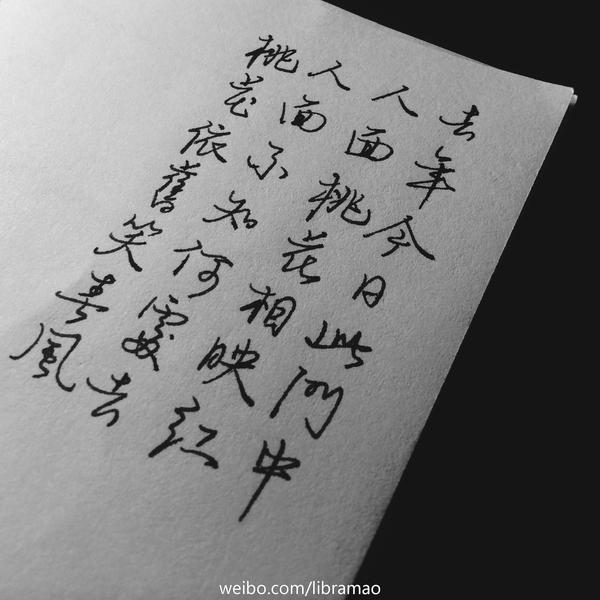 去年今日此门中
人面桃花相映红
人面不知何處去
桃花依舊笑春風
weibo.com/libramao